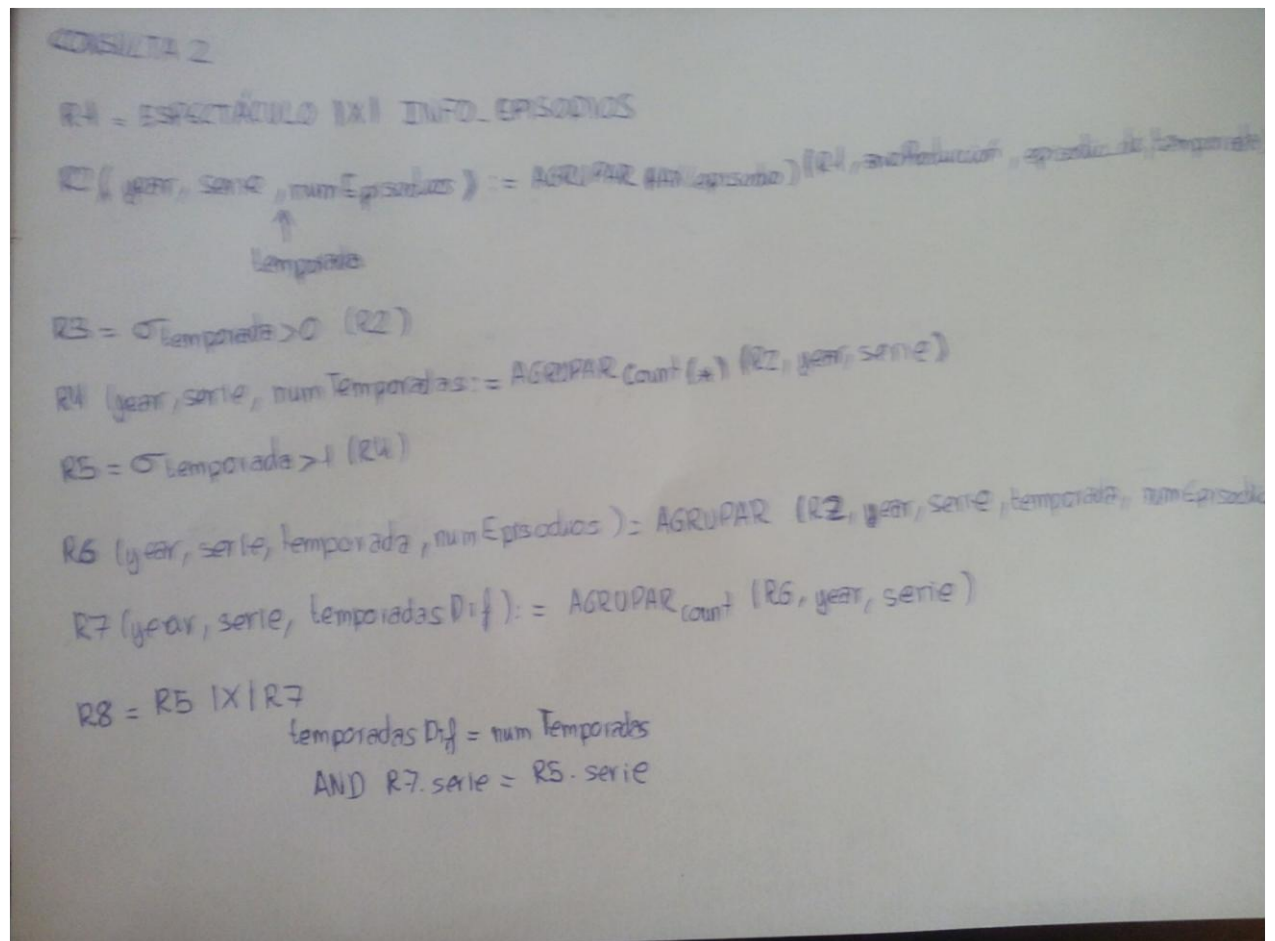 CONSULTA 2
R1 = ESPECTÁCULO |X| INFO_EPISODIOS
R2 ( year, serie, numEpisodios ) := AGRUPAR episodio) (R1, añoProducción, episodio de, temporada
↑
temporada
R3 = σ temporada>0 (R2)
R4 (year, serie, numTemporadas := AGRUPAR count(*) (R2, year, serie)
R5 = σ temporada>1 (R4)
R6 (year, serie, temporada, numEpisodios ) = AGRUPAR (R2, year, serie, temporada, numEpisodio
R7 (year, serie, temporadasDif) := AGRUPAR count (R6, year, serie)
R8 = R5 |X| R7
temporadasDif = numTemporadas
AND R7.serie = R5.serie